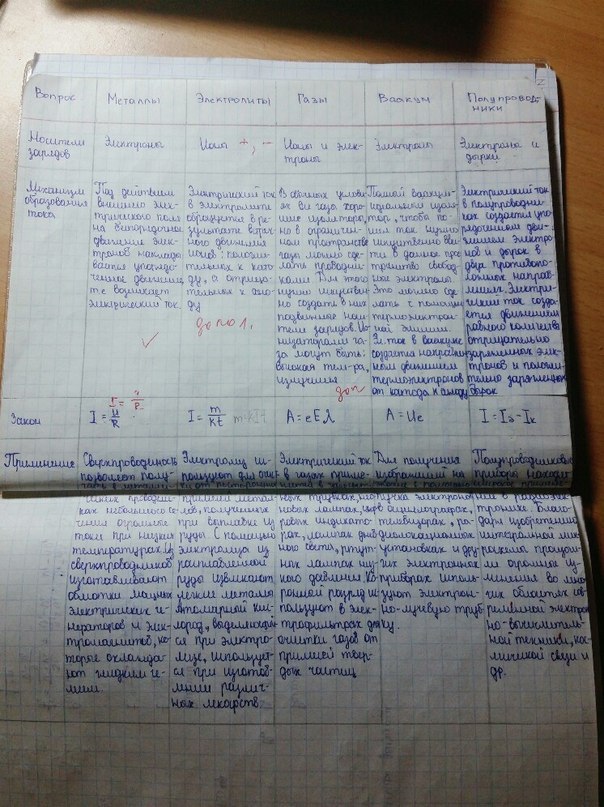 Вопрос
Металлы
Электролиты
Газы
Вакуум
Полупровод-
ники
Носители
зарядов
Электроны
Ионы +, -
Ионы и элек-
троны
Электроны
Электроны и
дырки
Механизм
образования
тока
Под действием
внешнего элек-
трического поля
на беспорядочное
движение элек-
тронов наклады-
вается упорядо-
ченное движение,
те возникает
электрический ток.
Электрический ток
в электролите
образуется в ре-
зультате встреч-
ного движения
ионов: положи-
тельных к като-
ду, а отрица-
тельных к ано-
ду
допол.
В обычных услови-
ях все газы хоро-
шие изоляторы,
но в ограничен-
ном пространстве
газы можно сде-
лать проводни-
ками. Для того
нужно искусствен-
но создать в них
подвижные носи-
тели зарядов. Ио-
низаторами га-
за могут быть:
высокая тем-ра,
излучения
доп
Полный вакуум-
идеальный изоля-
тор, чтобы по-
шёл ток нужно
искусственно вве-
сти в данное про-
странство свобод-
ные электроны.
Это можно сде-
лать с помощью
термоэлектрон-
ной эмиссии.
Эл. ток в вакууме
создается направлен-
ным движением
термоэлектронов
от катода к аноду
Электрический ток
в полупроводни-
ках создается упо-
рядоченным дви-
жением электро-
нов и дырок в
двух противопо-
ложных направ-
лениях. Электри-
ческий ток созда-
ется движением
равного количества
отрицательно
заряженных элек-
тронов и положи-
тельно заряженных
дырок
Закон
I = U/R
I = m/kt
A = eEλ
A = Ue
I = Iэ - Iк
Применение
Сверхпроводимость
позволяет полу-
ках небольшого се-
чения огромные
токи при низких
температурах. Из
сверхпроводников
изготавливают
обмотки мощных
электрических ге-
нераторов и элек-
тромагнитов, ко-
торые охлажда-
ют жидким ге-
лием.
Электролиз ис-
пользуют для очист-
лов, полученных
при выплавке из
руды. С помощью
электролиза из
расплавленной
руды извлекают
легкие металлы
Атомарный кис-
лород, выделяющий-
ся при электро-
лизе, использует-
ся при изготов-
лении различ-
ных лекарств.
Электрический ток
в газах приме-
вых трубках, мо-
новых лампах, циф-
ровых индикато-
рах, лампах днев-
ного света, ртут-
ных лампах низ-
кого давления. Ко-
ронный разряд ис-
пользуют в элек-
трофильтрах для
очистки газов от
примесей твер-
дых частиц
Для получения
изображений на
пучка электронов
в осциллографах,
телевизорах, ра-
диолокационных
установках и дру-
гих электронных
приборах исполь-
зуют электрон-
но-лучевую труб-
ку.
Полупроводниковые
приборы находят
широкое примене-
ние в радиоэлек-
тронике. Благо-
даря изобретению
интегральной мик-
росхемы произош-
ли огромные из-
менения во мно-
гих областях со-
временной электрон-
но-вычислитель-
ной техники, кос-
мической связи и
др.